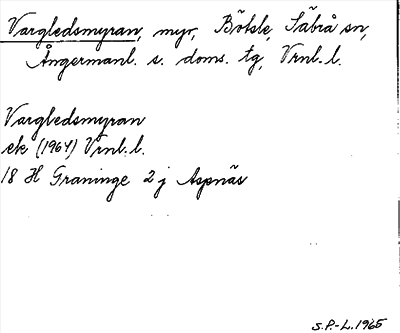 Vargledsmyran, myr, Bölsle, Säbrå sn,
Ångermanl. s. doms. tg, Vrnl. l.
Vargledsmyran
ek (1964) Vrnl. l.
18 H Graninge 2 j Aspnäs
S.P.-L. 1965